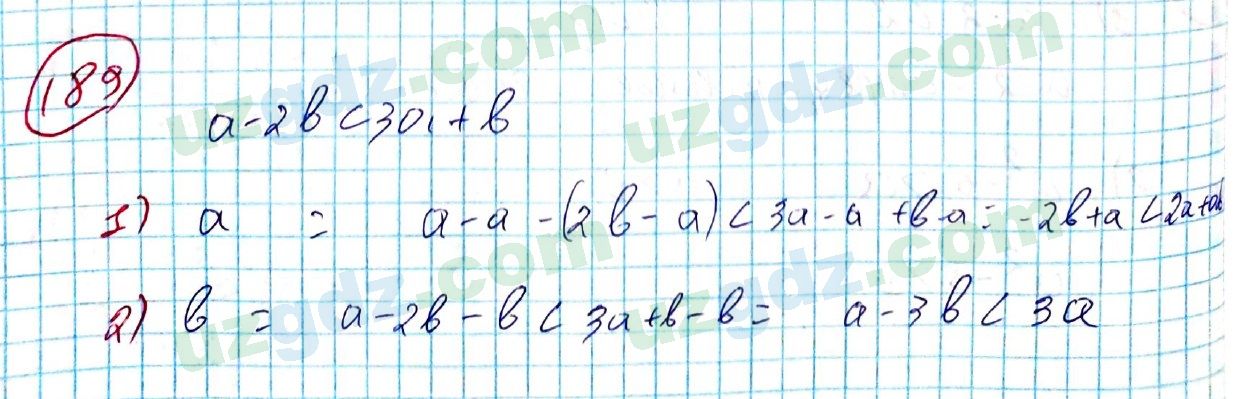 189
a-2b<3a+b
1) a = a-a-(2b-a)<3a-a+b-a= -2b+a<2a+ab
2) b = a-2b-b<3a+b-b= a-3b<3a
uzgdz.com
uzgdz.com
uzgdz.com
uzgdz.com